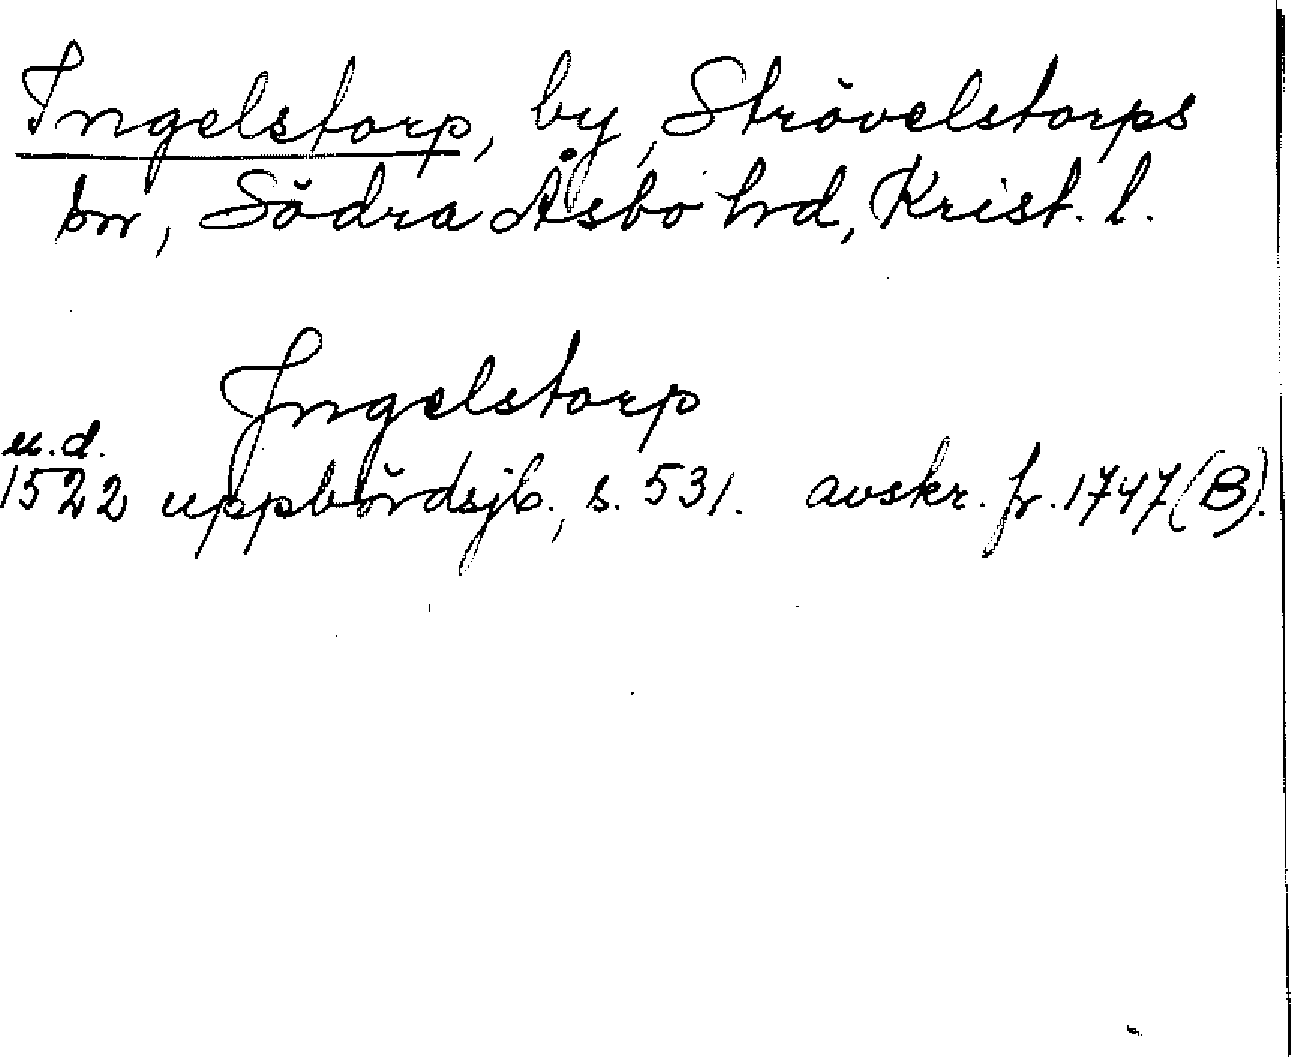 Ingelstorp, by, Strövelstorps
sn, Södra Åsbo hrd, Krist. l.
Ingelstorp
u.d.
1522 uppbördsjb., s. 531. avskr. fr. 1747 (B).